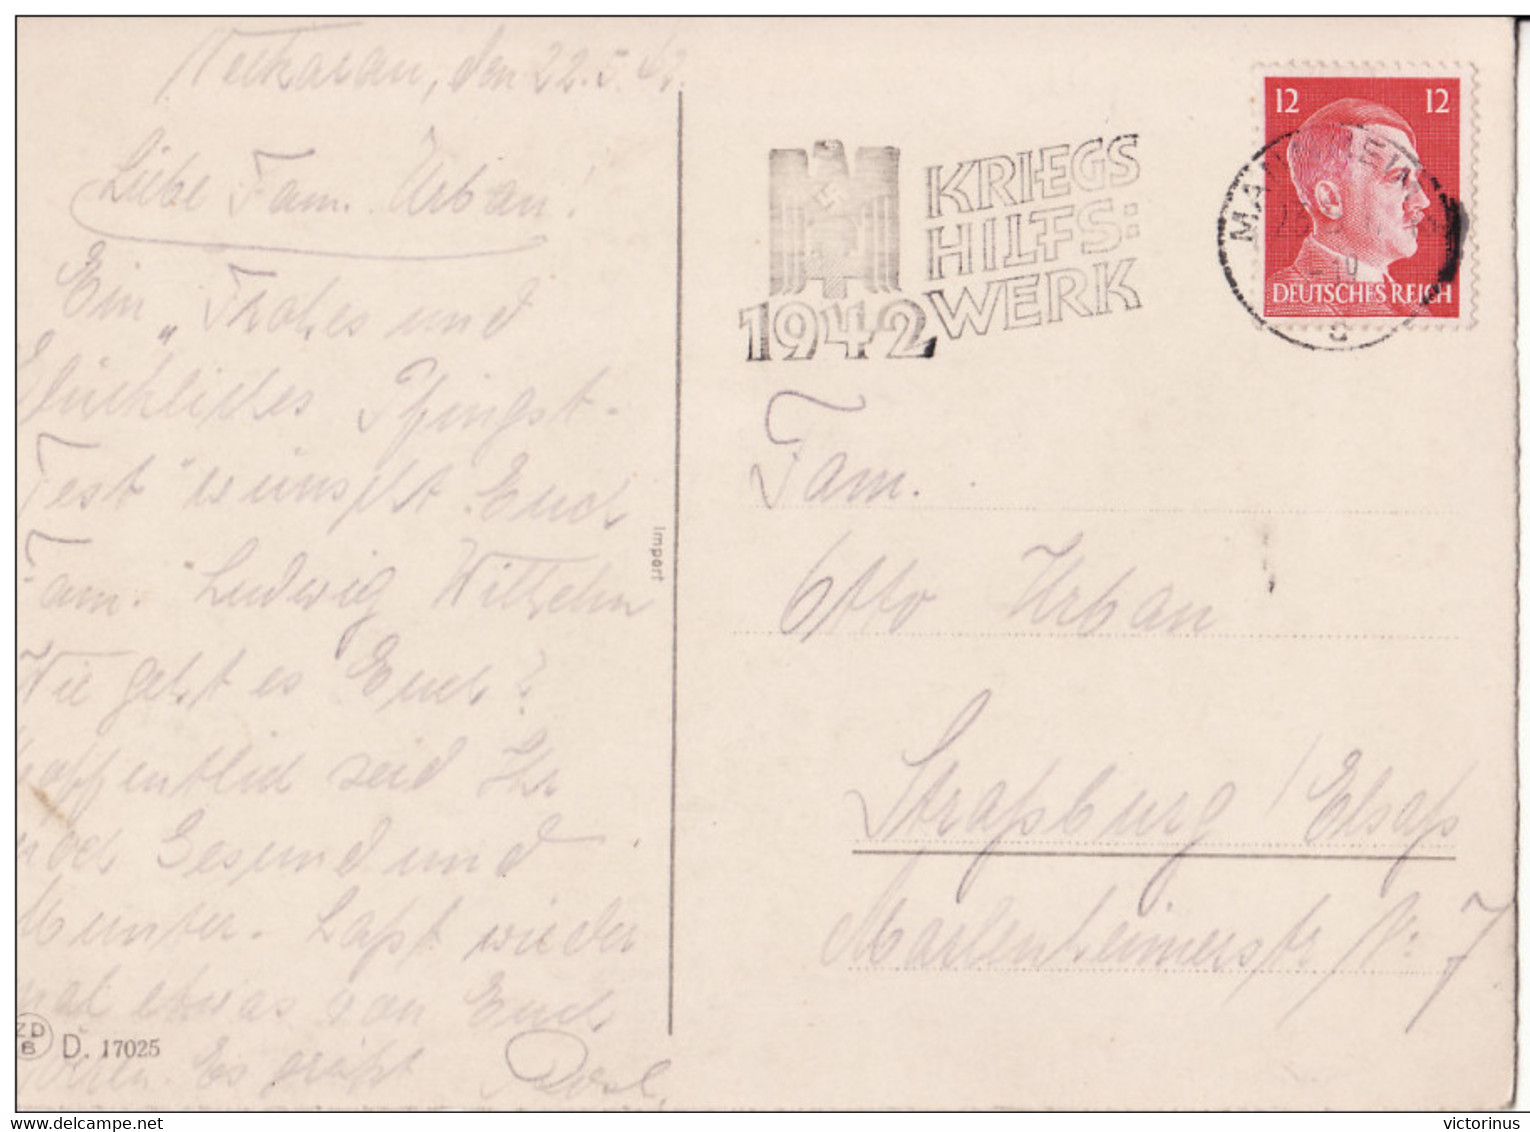 Neckarau, den 22.5.42.
Liebe Fam. Urban!
Ein „Frohes und
Glückliches Pfingst-
Fest" wünscht Euch
Fam. Ludwig Wilhelm
Wie geht es Euch?
hoffentlich seid Ihr
noch Gesund und
Munter. Laßt wieder
mal etwas von Euch
hören. Es grüßt
ZD
B
D. 17025
Import
KRIEGS
HILFS:
WERK
1942
12 12
DEUTSCHES REICH
Fam.
Otto Urban
Straßburg / Elsaß
Marlenheimerstr N: 7
www.delcampe.net
victorinus